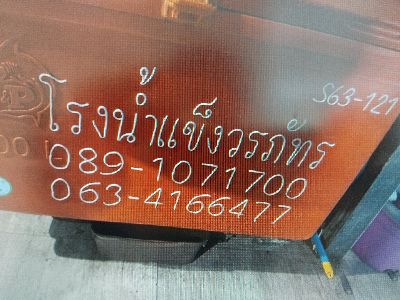 S63-121
โรงน้ำแข็งวรภัทร
089-1071700
063-4166477